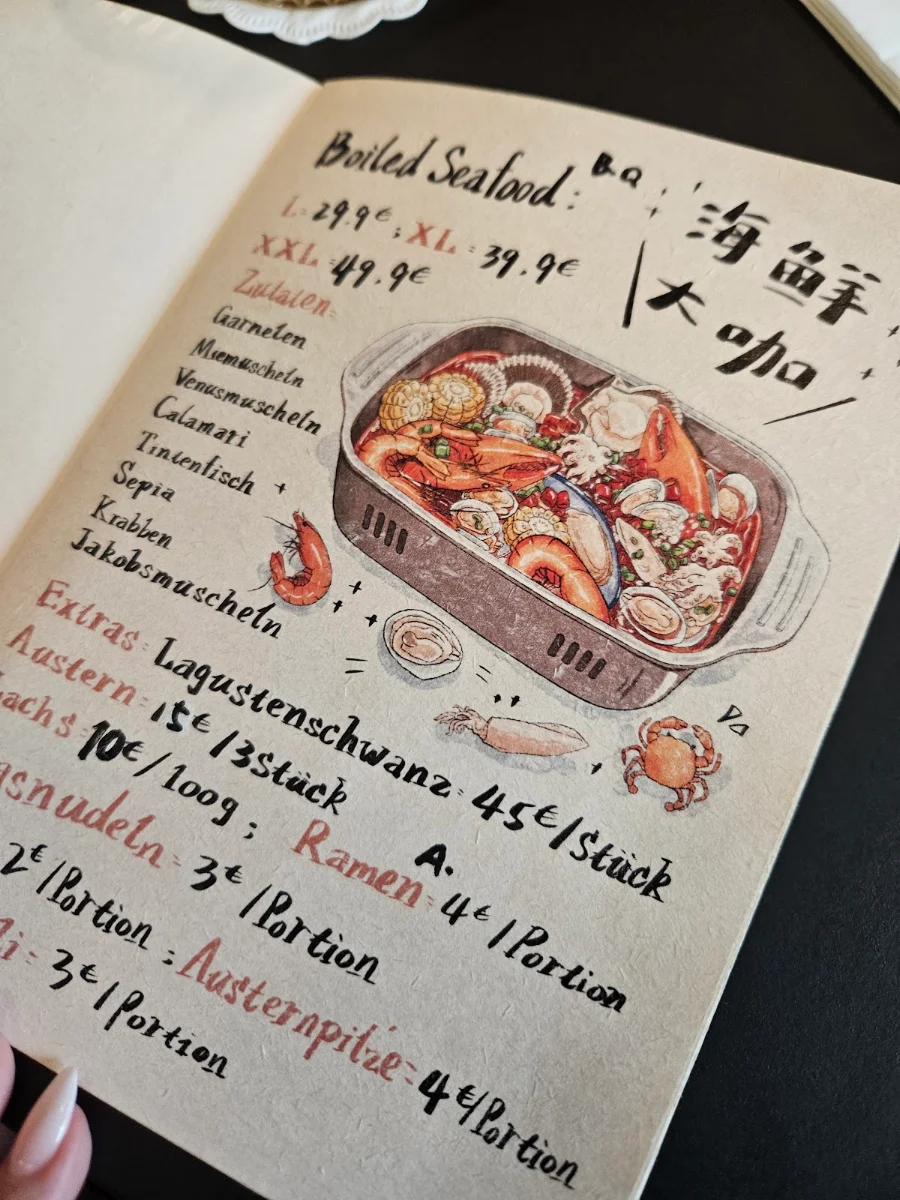 Boiled Seafood: B.a
海鲜
大咖
L: 29.9€; XL: 39.9€
XXL: 49.9€
Zutaten:
Garnelen
Miemuscheln
Venusmuscheln
Calamari
Tintenfisch
Sepia
Krabben
Jakobsmuscheln
Extras: Lagustenschwanz: 45€/Stück
Austern: 15€/3Stück
10€/100g; Ramen: 4€/Portion
A.
3€/Portion
2€/Portion; Austernpilze: 4€/Portion
3€/Portion
Da